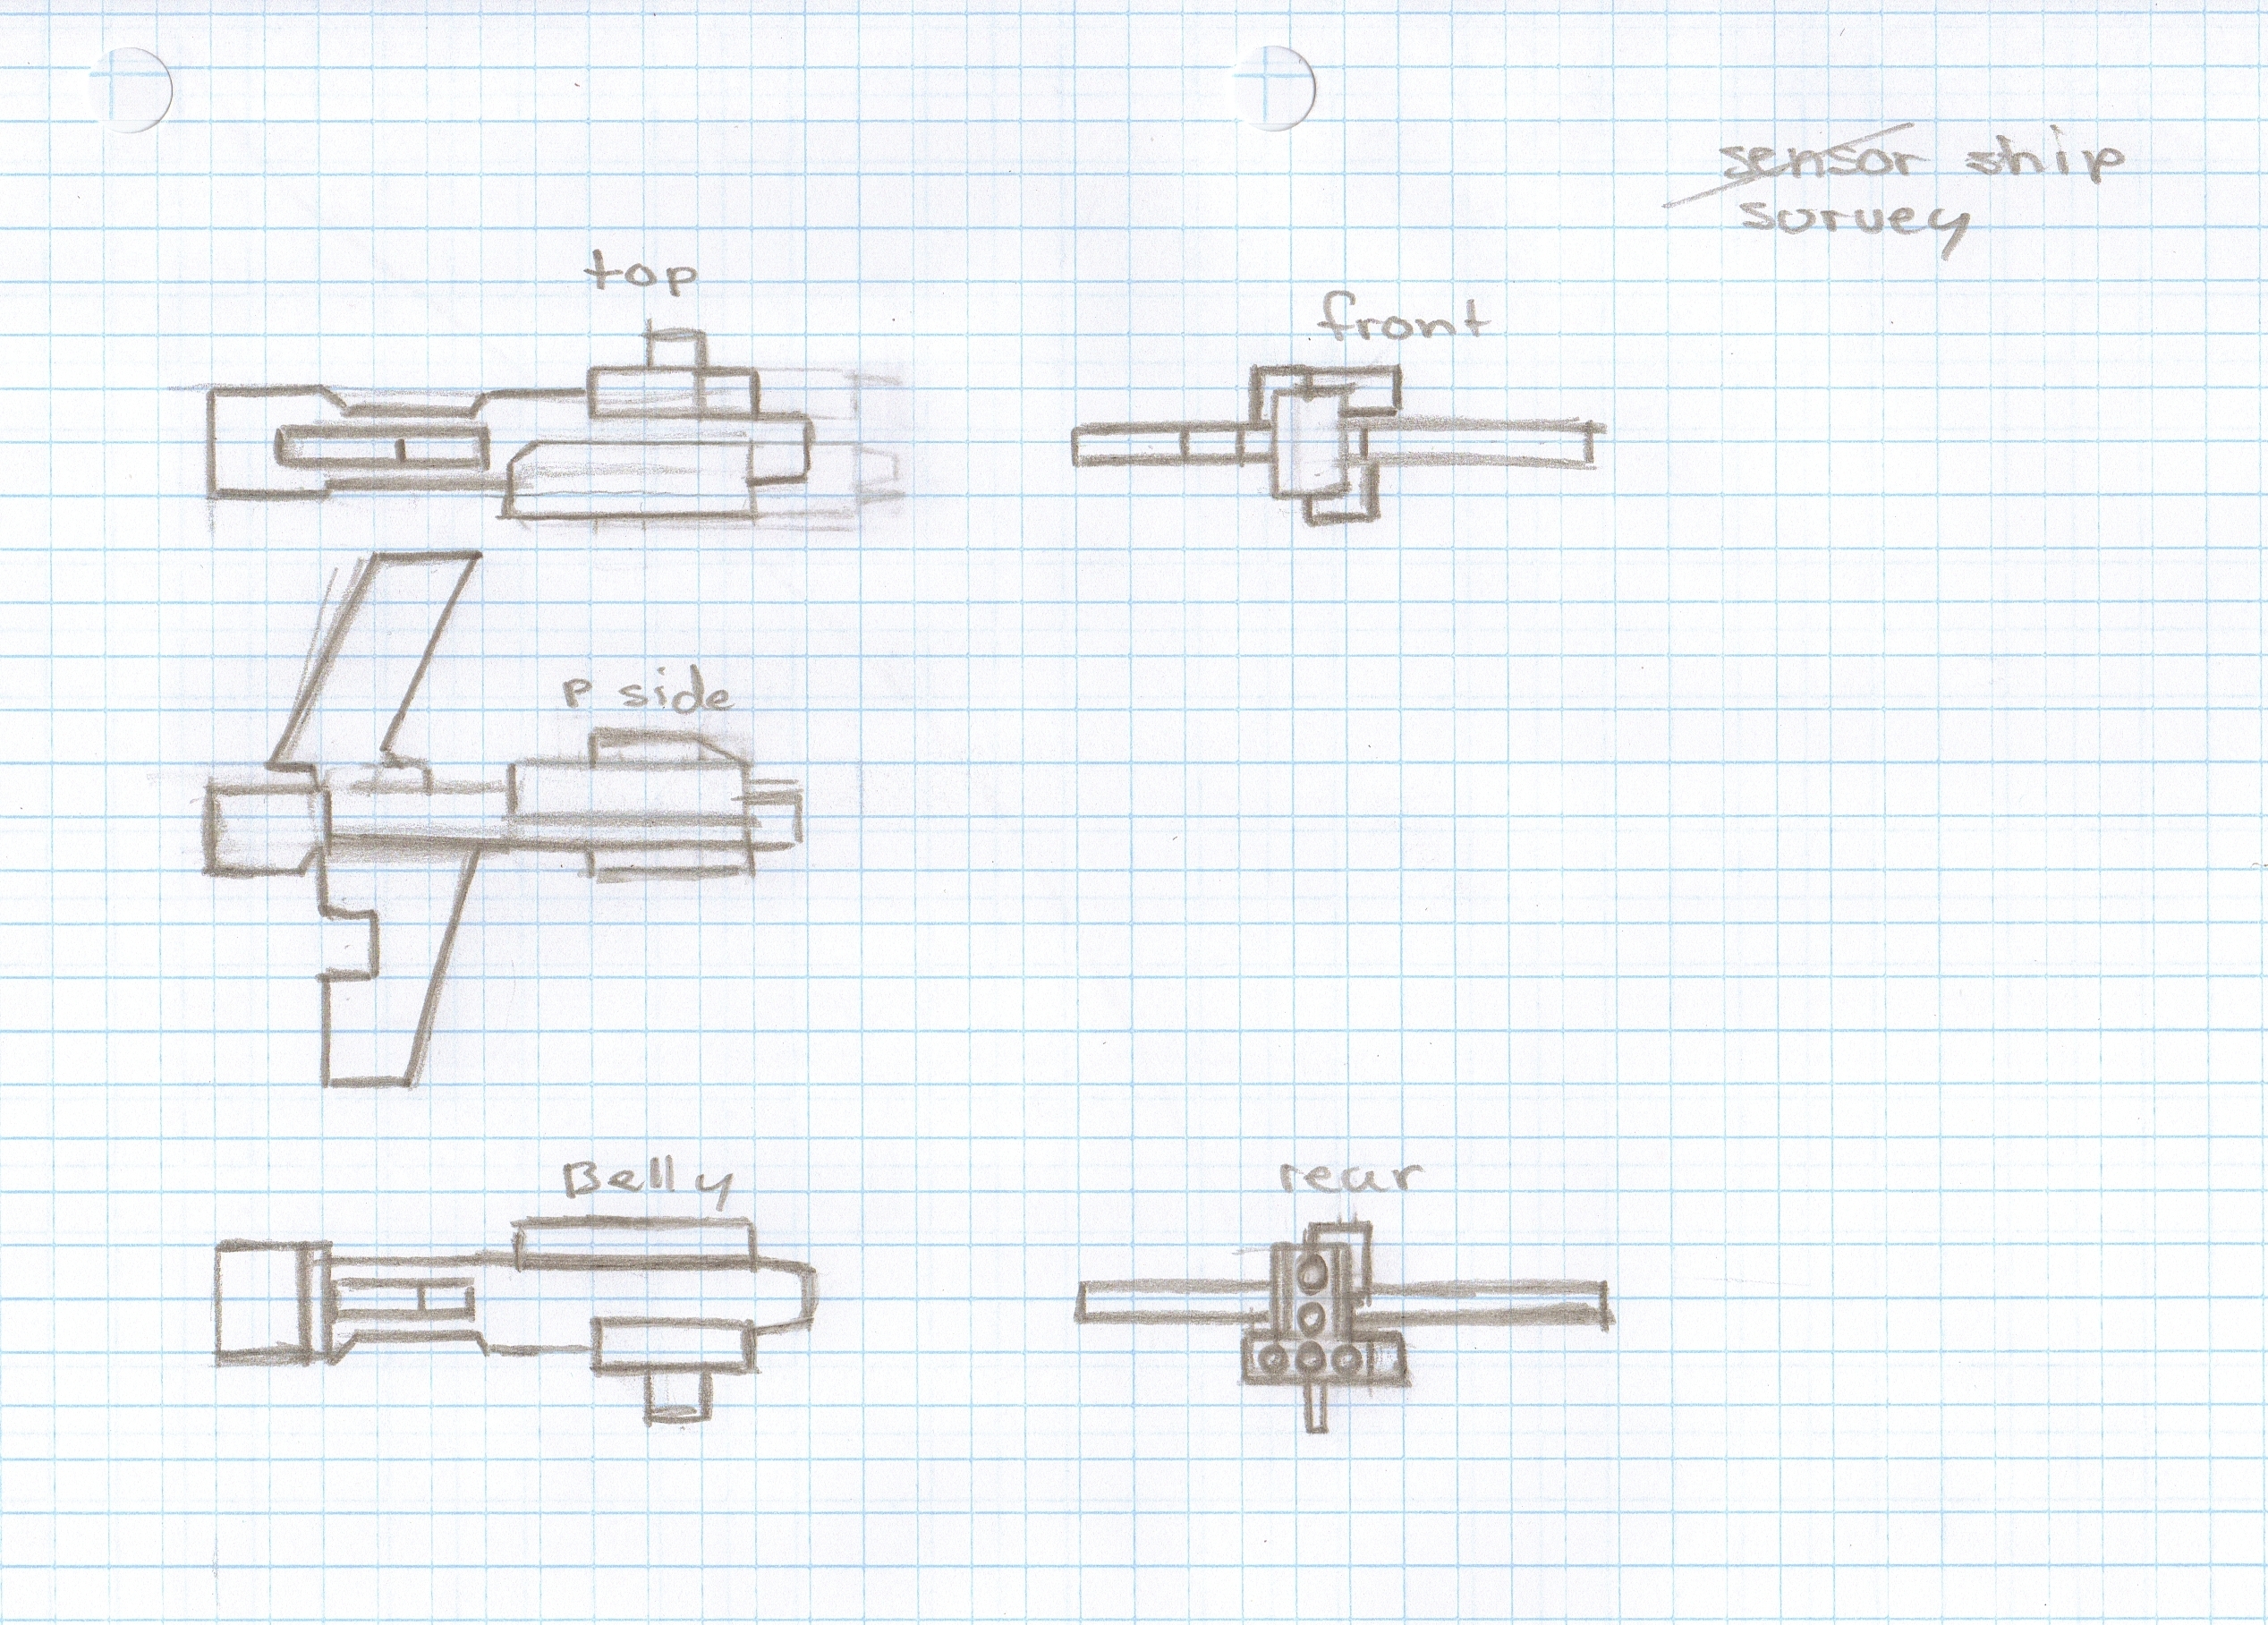 sensor ship
survey
top
front
P side
Belly
rear